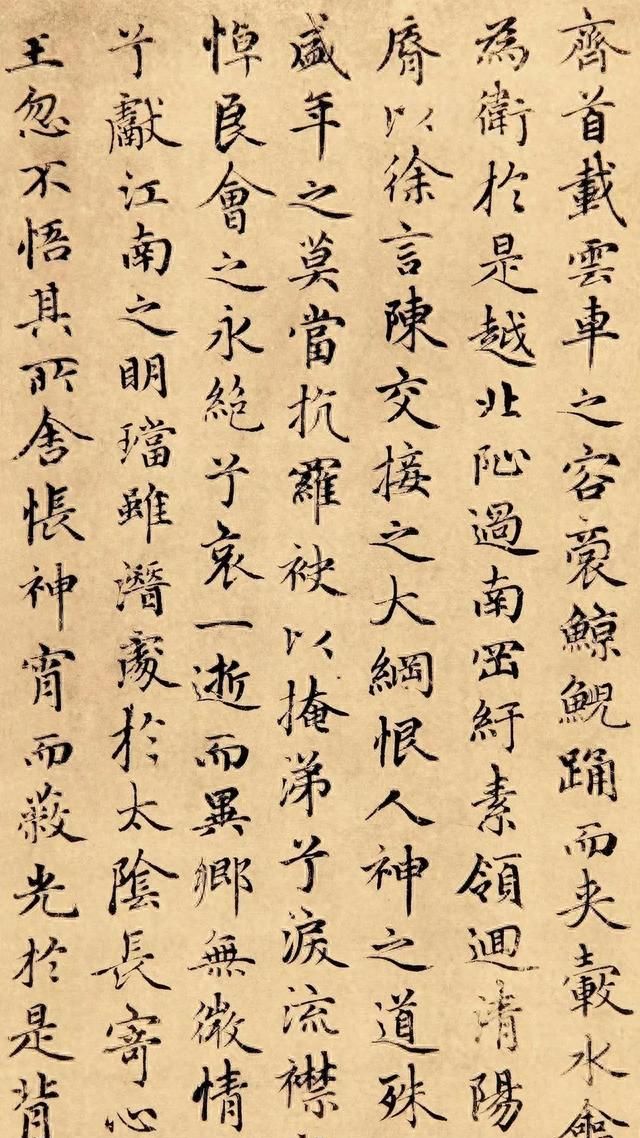 齊首載雲車之容裔鯨鯢踊而夾轂水禽
為衛於是越北阯過南岡紆素領迴清陽
脣以徐言陳交接之大綱恨人神之道殊
盛年之莫當抗羅袂以掩涕兮淚流襟
悼良會之永絕兮哀一逝而異鄉無微情
兮獻江南之明璫雖潛處於太陰長寄心
王忽不悟其所舍悵神宵而蔽光於是背